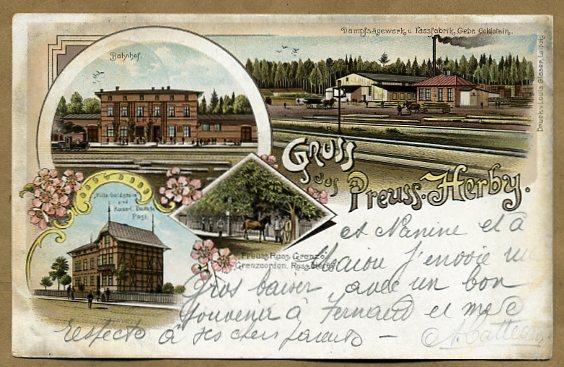 Bahnhof.
Dampfsägewerk u. Fassfabrik, Gebr. Goldstein.
Druck v. Louis Glaser, Leipzig
Gruss
aus Preuss. Herby.
Villa Goldstein
und
Kaiserl. Deutsche
Post
Preuss. Russ. Grenze
Grenzcordon, Russ. Herby
et Nanine et à
j'envoie un
gros baiser avec un bon
souvenir à Fernand et mes
respects à ses chers parents —